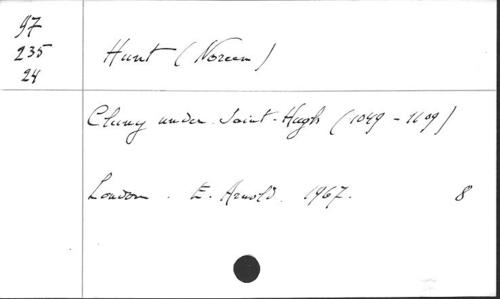 97
235
24
Hunt (Noreen)
Cluny under Saint-Hugh (1049-1109)
London. E. Arnold. 1967. 8